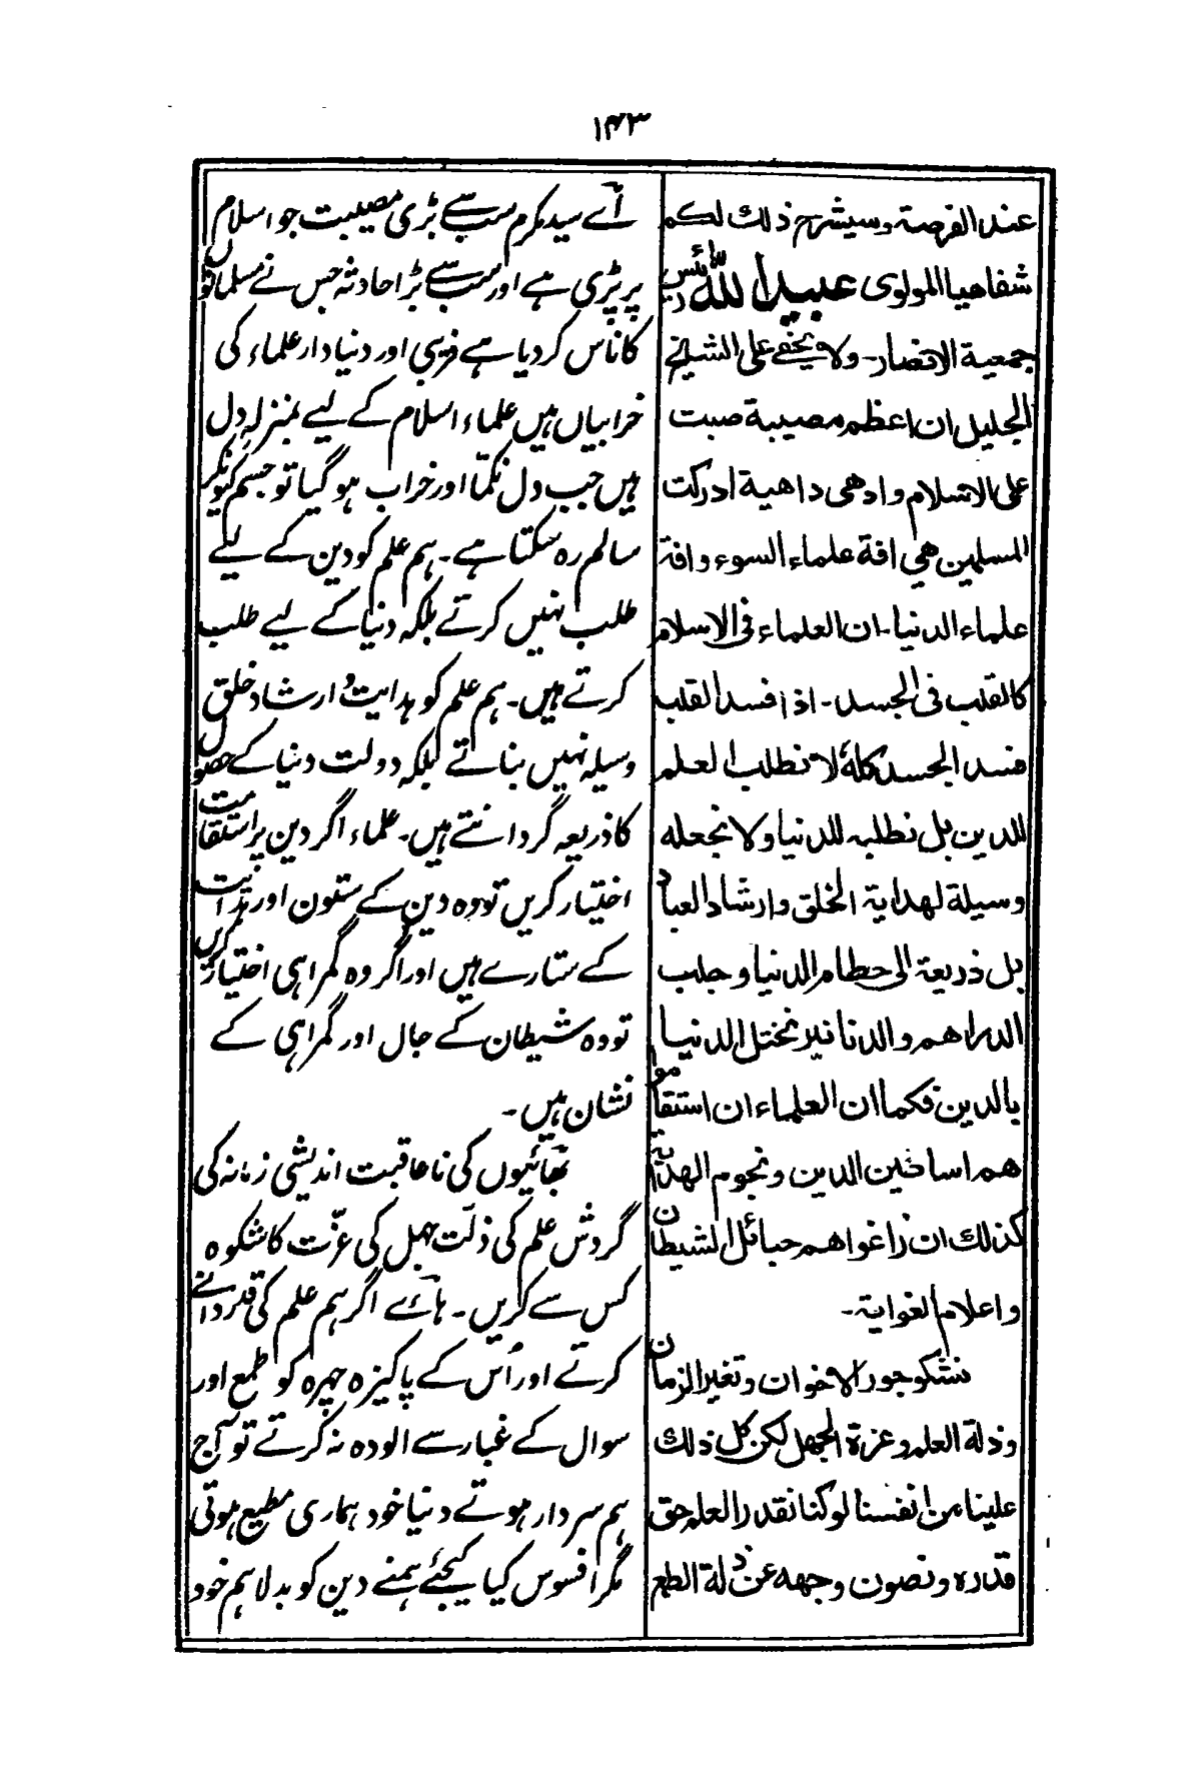 ۱۴۳
عند الفرصة وسيشرح ذلك لكم
شفاهيا المولوى عبيد الله رئيس
جمعية الانصار- ولا يخفى على الشيخ
الجليل ان اعظم مصيبة صبت
على الاسلام وادهى داهية ادركت
المسلمين هي افة علماء السوء وافة
علماء الدنيا- ان العلماء فى الاسلام
كالقلب فى الجسد- اذا فسد القلب
فسد الجسد كله لا نطلب العلم
للدين بل نطلبه للدنيا ولا نجعله
وسيلة لهداية الخلق وارشاد العباد
بل ذريعة الى حطام الدنيا وجلب
الدراهم والدنانير نختل الدنيا
بالدين فكما ان العلماء ان استقاموا
هم اساطين الدين ونجوم الهداية
كذلك ان زاغوا هم حبائل الشيطان
واعلام الغواية-
نشكو جور الاخوان وتغير الزمان
وذلة العلم وعزة الجهل لكن كل ذلك
علينا من انفسنا لو كنا نقدر العلم حق
قدره ونصون وجهه عن ذلة الطمع
اے سید مکرم سب سے بڑی مصیبت جو اسلام
پر پڑی ہے اور سب سے بڑا حادثہ جس نے مسلمانوں
کا ناس کر دیا ہے فریبی اور دنیا دار علماء کی
خرابیاں ہیں علماء اسلام کے لیے بمنزلہ دل
ہیں جب دل نکمّا اور خراب ہو گیا تو جسم کیونکر
سالم رہ سکتا ہے۔ ہم علم کو دین کے لیے
طلب نہیں کرتے بلکہ دنیا کے لیے طلب
کرتے ہیں۔ ہم علم کو ہدایت و ارشاد خلق
وسیلہ نہیں بناتے بلکہ دولت دنیا کے حصول
کا ذریعہ گردانتے ہیں۔ علماء اگر دین پر استقامت
اختیار کریں تو وہ دین کے ستون اور ہدایت
کے ستارے ہیں اور اگر وہ گمراہی اختیار کریں
تو وہ شیطان کے جال اور گمراہی کے
نشان ہیں۔
بھائیوں کی ناعاقبت اندیشی زمانہ کی
گردش علم کی ذلّت جہل کی عزّت کا شکوہ
کس سے کریں۔ ہائے اگر ہم علم کی قدردانی
کرتے اور اُس کے پاکیزہ چہرہ کو طمع اور
سوال کے غبار سے الودہ نہ کرتے تو آج
ہم سردار ہوتے دنیا خود ہماری مطیع ہوتی
مگر افسوس کیا کیجئے ہمنے دین کو بدلا ہم خود